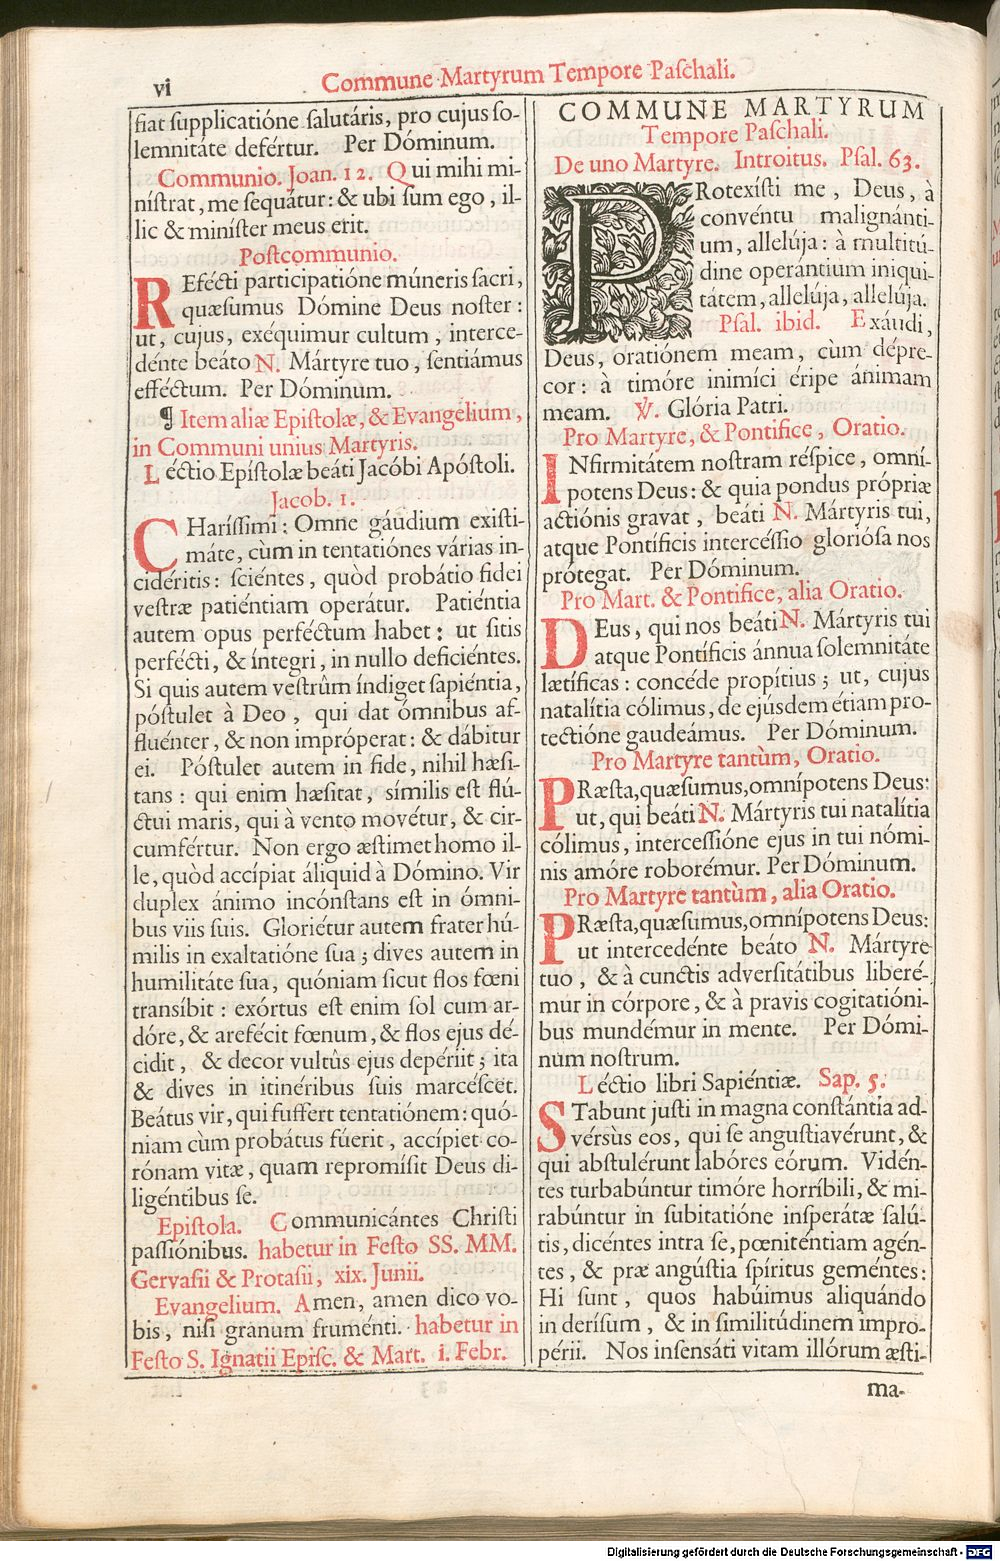 vi
Commune Martyrum Tempore Paſchali.
fiat ſupplicatióne ſalutáris, pro cujus ſo-
lemnitáte defértur. Per Dóminum.
Communio. Joan. 12. Qui mihi mi-
níſtrat, me ſequátur: & ubi ſum ego, il-
lic & miníſter meus erit.
Poſtcommunio.
REfécti participatióne múneris ſacri,
quæſumus Dómine Deus noſter:
ut, cujus, exéquimur cultum, interce-
dénte beáto N. Mártyre tuo, ſentiámus
efféctum. Per Dóminum.
¶ Item aliæ Epiſtolæ, & Evangelium,
in Communi unius Martyris.
Léctio Epíſtolæ beáti Jacóbi Apóſtoli.
Jacob. 1.
CHaríſſimi: Omne gáudium exiſti-
máte, cùm in tentatiónes várias in-
cidéritis: ſciéntes, quòd probátio fidei
veſtræ patiéntiam operátur. Patiéntia
autem opus perféctum habet: ut ſitis
perfécti, & íntegri, in nullo deficiéntes.
Si quis autem veſtrûm índiget ſapiéntia,
póſtulet à Deo, qui dat ómnibus af-
fluénter, & non impróperat: & dábitur
ei. Póſtulet autem in fide, nihil hæſi-
tans: qui enim hæſitat, símilis eſt flú-
ctui maris, qui à vento movétur, & cir-
cumfértur. Non ergo æſtimet homo il-
le, quòd accípiat áliquid à Dómino. Vir
duplex ánimo incónſtans eſt in ómni-
bus viis ſuis. Gloriétur autem frater hú-
milis in exaltatióne ſua; dives autem in
humilitáte ſua, quóniam ſicut flos fœni
transíbit: exórtus eſt enim ſol cum ar-
dóre, & arefécit fœnum, & flos ejus dé-
cidit, & decor vultûs ejus depériit; ita
& dives in itinéribus ſuis marcéſcet.
Beátus vir, qui ſuffert tentatiónem: quó-
niam cùm probátus fúerit, accípiet co-
rónam vitæ, quam repromíſit Deus di-
ligéntibus ſe.
Epiſtola. Communicántes Chriſti
paſſiónibus. habetur in Feſto SS. MM.
Gervaſii & Protaſii, xix. Junii.
Evangelium. Amen, amen dico vo-
bis, niſi granum fruménti. habetur in
Feſto S. Ignatii Epiſc. & Mart. i. Febr.
COMMUNE MARTYRUM
Tempore Paſchali.
De uno Martyre. Introitus. Pſal. 63.
PRotexíſti me, Deus, à
convéntu malignánti-
um, allelúja: à multitú-
dine operántium iniqui-
tátem, allelúja, allelúja.
Pſal. ibid. Exáudi,
Deus, oratiónem meam, cùm dépre-
cor: à timóre inimíci éripe ánimam
meam. ℣. Glória Patri.
Pro Martyre, & Pontifice, Oratio.
INfirmitátem noſtram réſpice, omní-
potens Deus: & quia pondus própriæ
actiónis gravat, beáti N. Mártyris tui,
atque Pontíficis intercéſſio glorióſa nos
prótegat. Per Dóminum.
Pro Mart. & Pontifice, alia Oratio.
DEus, qui nos beáti N. Mártyris tui
atque Pontíficis ánnua ſolemnitáte
lætíficas: concéde propítius; ut, cujus
natalítia cólimus, de ejúsdem étiam pro-
tectióne gaudeámus. Per Dóminum.
Pro Martyre tantùm, Oratio.
PRæſta, quæſumus, omnípotens Deus:
ut, qui beáti N. Mártyris tui natalítia
cólimus, interceſſióne ejus in tui nómi-
nis amóre roborémur. Per Dóminum.
Pro Martyre tantùm, alia Oratio.
PRæſta, quæſumus, omnípotens Deus:
ut intercedénte beáto N. Mártyre
tuo, & à cunctis adverſitátibus liberé-
mur in córpore, & à pravis cogitatióni-
bus mundémur in mente. Per Dómi-
num noſtrum.
Léctio libri Sapiéntiæ. Sap. 5.
STabunt juſti in magna conſtántia ad-
vérsùs eos, qui ſe anguſtiavérunt, &
qui abſtulérunt labóres eórum. Vidén-
tes turbabúntur timóre horríbili, & mi-
rabúntur in ſubitatióne inſperátæ ſalú-
tis, dicéntes intra ſe, pœniténtiam agén-
tes, & præ angúſtia ſpíritus geméntes:
Hi ſunt, quos habúimus aliquándo
in deríſum, & in ſimilitúdinem impro-
périi. Nos inſensáti vitam illórum æſti-
ma-
Digitalisierung gefördert durch die Deutsche Forschungsgemeinschaft - DFG